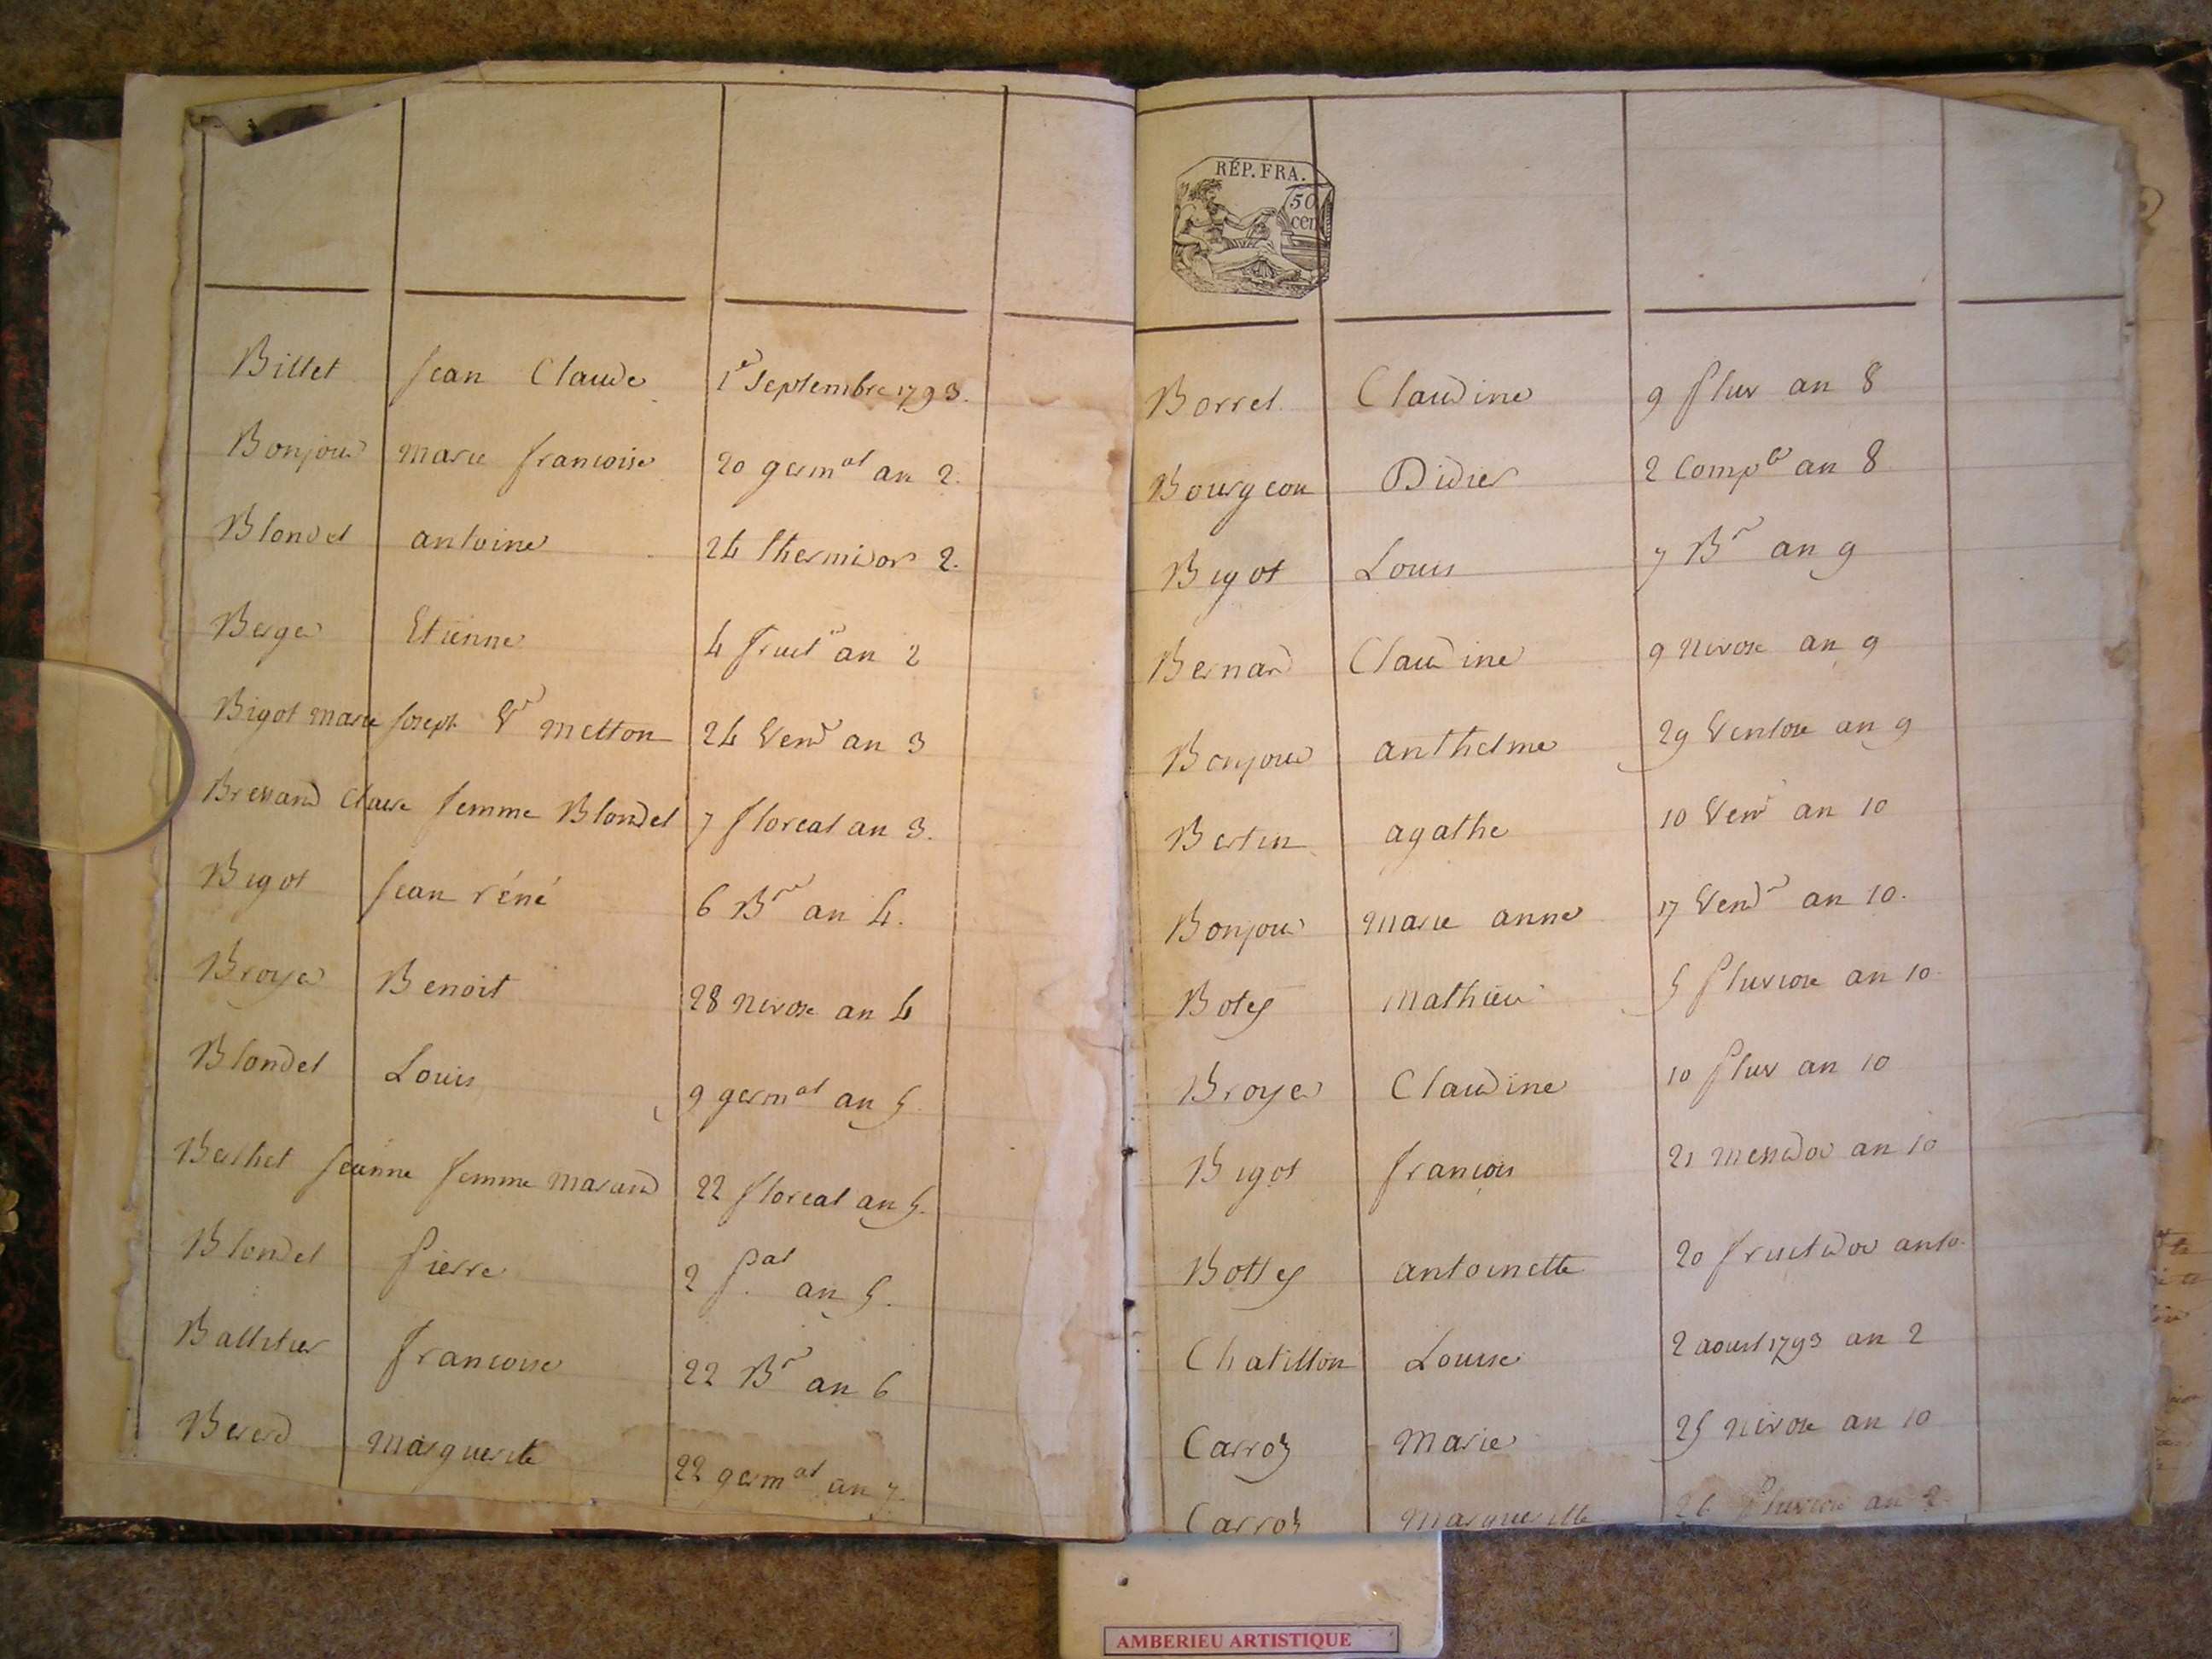 Billet Jean Claude 1er Septembre 1793.
Bonjour Marie francoise 20 germal an 2.
Blondel antoine 24 thermidor 2.
Berger Etienne 4 fruct an 2
Bigot marie Joseph Ve Metton 24 Vend an 3
Bressand Claire femme Blondel 7 floreal an 3.
Bigot Jean réné 6 Bre an 4.
Broyer Benoit 28 nivose an 4
Blondel Louis 9 germal an 5.
Berthet Jeanne femme marand 22 floreal an 5.
Blondel Pierre 2 Pal an 5.
Ballitier francoise 22 Bre an 6
Bererd Marguerite 22 germal an 7.
RÉP. FRA.
50
cen
Borrel Claudine 9 Pluv an 8
Bourgeon Didier 2 Compre an 8
Bigot Louis 7 Bre an 9
Bernard Claudine 9 nivose an 9
Bonjour anthelme 29 Ventose an 9
Bertin agathe 10 Venre an 10
Bonjour Marie anne 17 Vendre an 10.
Botey mathieu 5 Pluviose an 10
Broyer Claudine 10 Pluv an 10
Bigot françois 21 messidor an 10
Bottey antoinette 20 fructidor an 10
Chatillon Louise 2 aoust 1793 an 2
Carroz Marie 25 nivose an 10
Carroz Margueritte 26 Pluviose an
AMBERIEU ARTISTIQUE